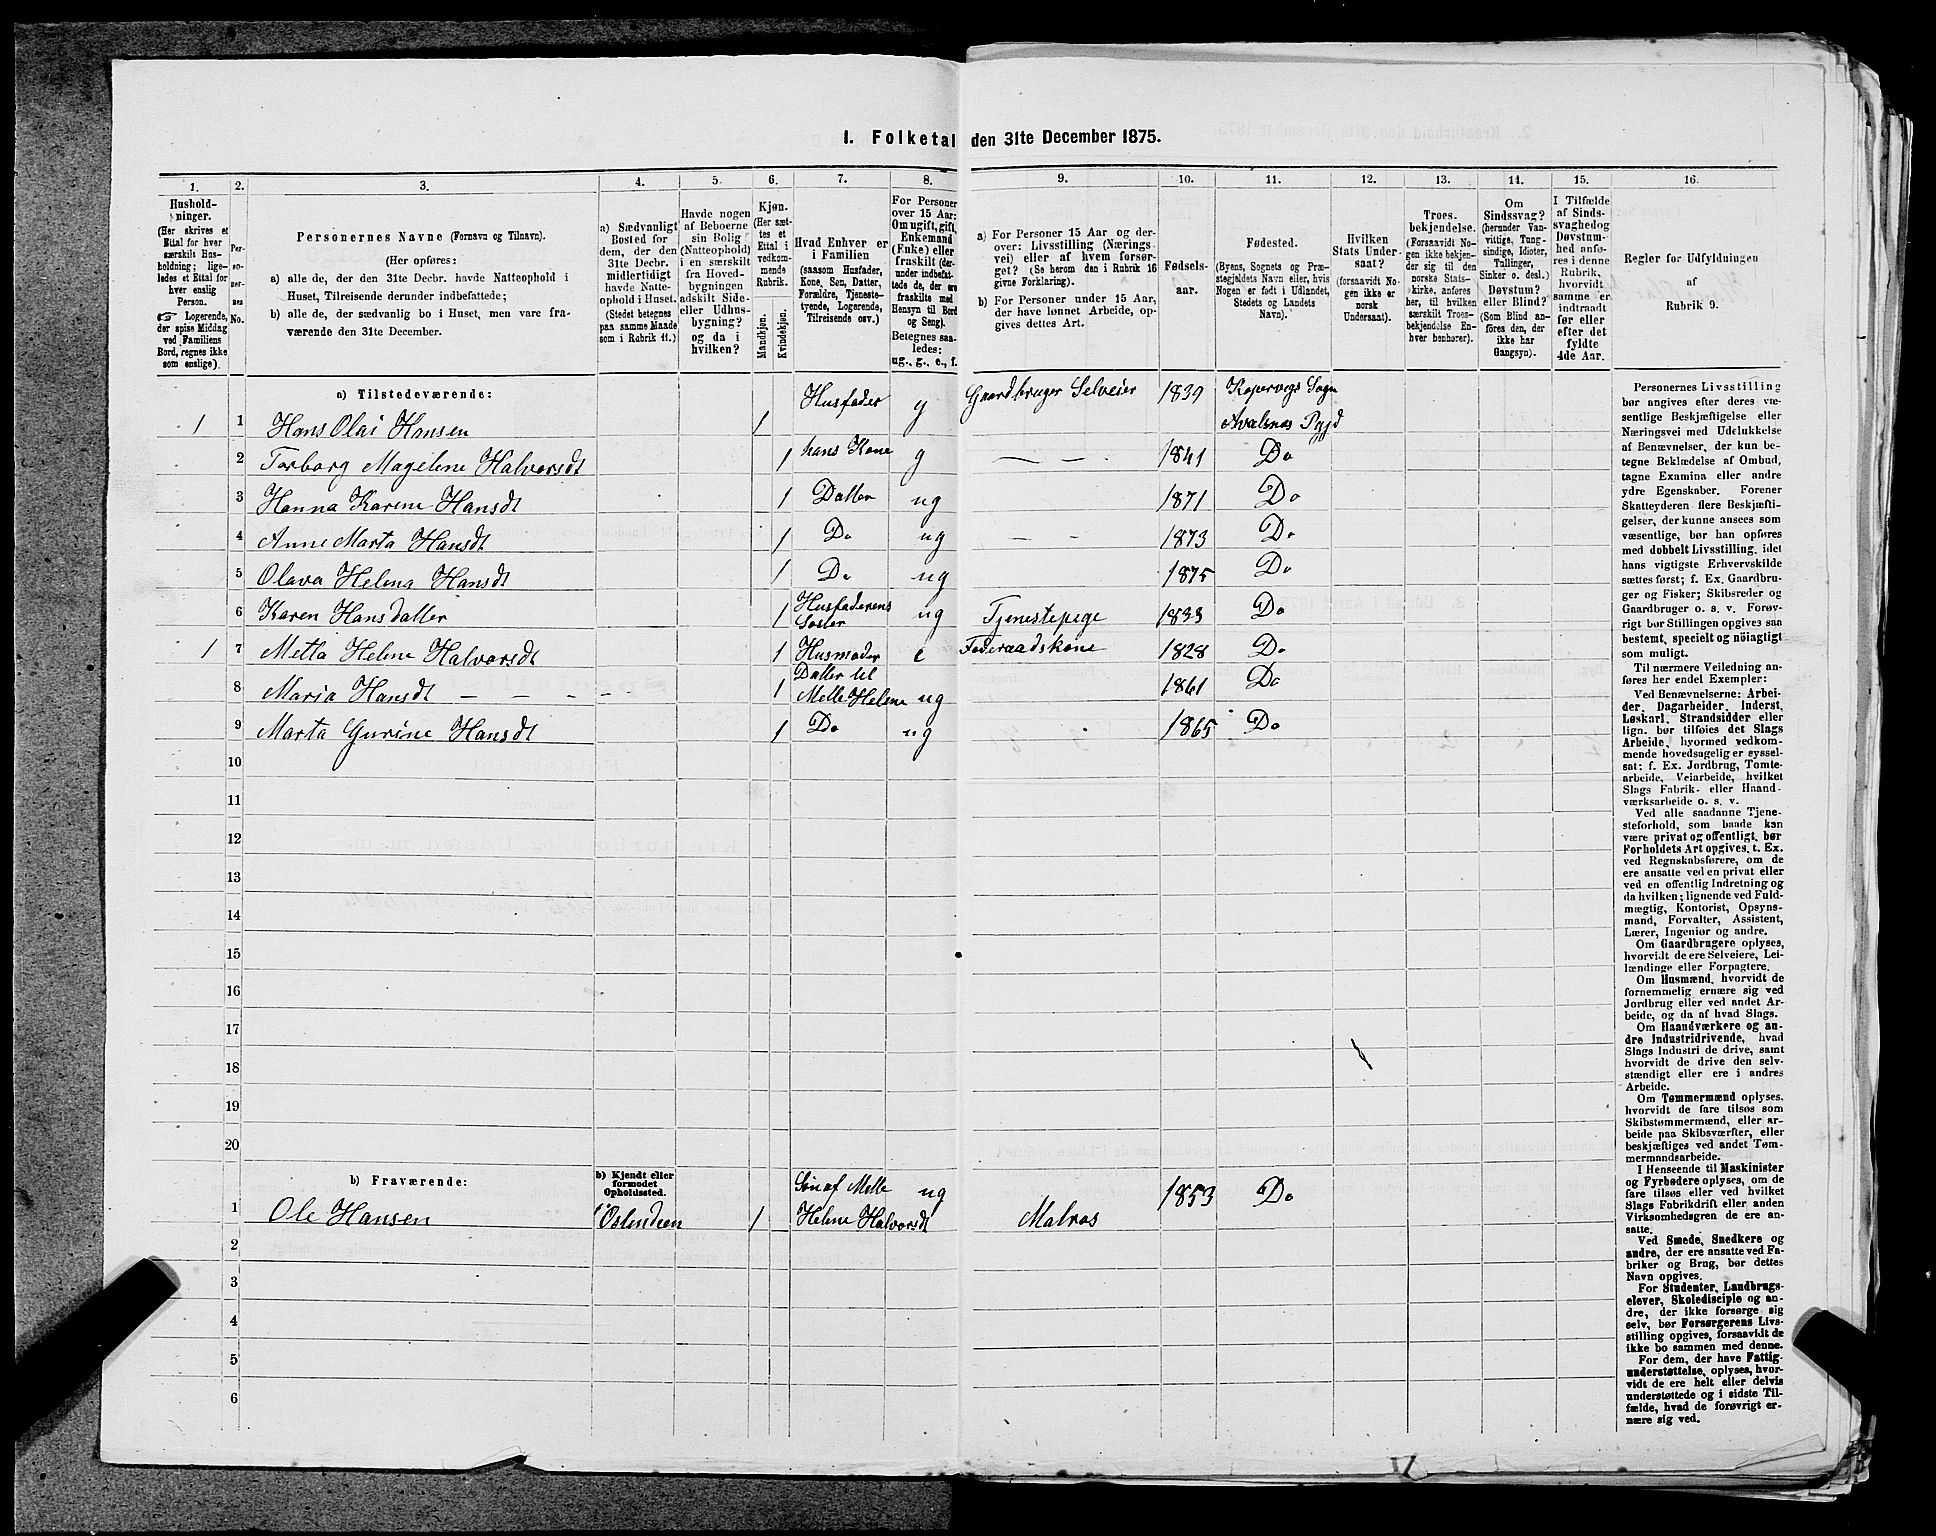 I. Folketal den 31te December 1875.
1. 2. 3. 4. 5. 6. 7. 8. 9. 10. 11. 12. 13. 14. 15. 16.
Hushold-
ninger.
(Her skrives et
Ettal for hver
særskilt Hus-
holdning; lige-
ledes et Ettal for
hver enslig
Person.
☞ Logerende,
der spise Middag
ved Familiens
Bord, regnes ikke
som enslige).
Per-
so-
ner-
nes
No.
Personernes Navne (Fornavn og Tilnavn).
(Her opføres:
a) alle de, der den 31te Decbr. havde Natteophold i
Huset, Tilreisende derunder indbefattede;
b) alle de, der sædvanlig bo i Huset, men vare fra-
værende den 31te December.
a) Sædvanligt
Bosted for
dem, der den
31te Decbr.
midlertidigt
havde Natte-
ophold i Huset.
(Stedet betegnes
paa samme Maade
som i Rubrik 11.)
Havde nogen
af Beboerne
sin Bolig
(Natteophold)
i en særskilt
fra Hoved-
bygningen
adskilt Side-
eller Udhus-
bygning?
og da i
hvilken?
Kjøn.
(Her sæt-
tes et
Ettal i
vedkom-
mende
Rubrik.
Mandkjøn.
Kvindekjøn.
Hvad Enhver er
i Familien
(saasom Husfader,
Kone, Søn, Datter,
Forældre, Tjeneste-
tyende, Logerende,
Tilreisende osv.)
For Personer
over 15 Aar:
Om ugift, gift,
Enkemand
(Enke) eller
fraskilt (der-
under indbefat-
tede de, der ere
fraskilte med
Hensyn til Bord
og Seng).
Betegnes saa-
ledes:
ug., g., e., f.
a) For Personer 15 Aar og der-
over: Livsstilling (Nærings-
vei) eller af hvem forsør-
get? (Se herom den i Rubrik 16
givne Forklaring).
b) For Personer under 15 Aar,
der have lønnet Arbeide, op-
gives dettes Art.
Fødsels-
aar.
Fødested.
(Byens, Sognets og Præ-
stegjældets Navn eller, hvis
Nogen er født i Udlandet,
Stedets og Landets
Navn).
Hvilken
Stats Under-
saat?
(forsaavidt No-
gen ikke er
norsk
Undersaat).
Troes-
bekjendelse.
(Forsaavidt No-
gen ikke bekjen-
der sig til den
norske Stats-
kirke, anføres
her, til hvilken
særskilt Troes-
bekjendelse En-
hver henhører).
Om
Sindssvag?
(herunder Van-
vittige, Tung-
sindige, Idioter,
Tullinger,
Sinker o. desl.)
Døvstum?
eller Blind?
(Som Blind an-
føres den, der
ikke har
Gangsyn).
I Tilfælde
af Sinds-
svaghed og
Døvstum-
hed anfø-
res i denne
Rubrik,
hvorvidt
samme er
indtraadt
før eller
efter det
fyldte
4de Aar.
Regler for Udfyldningen
af
Rubrik 9.
a) Tilstedeværende:
1 1 Hans Olai Hansen 1 Husfader g Gaardbruger Selveier 1839 Kopervigs Sogn
Avalsnes Pgjd
2 Torborg Magelene Halvorsdt 1 hans Kone g — - — - 1841 Do
3 Hanna Karine Hansdt 1 Datter ug 1871 Do
4 Anne Marta Hansdt 1 Do ug — — 1873 Do
5 Olava Helena Hansdt 1 Do ug 1875 Do
6 Karen Hansdatter 1 Husfaderens
Søster ug Tjenestepige 1833 Do
1 7 Metta Helene Halvorsdt 1 Husmoder e Føderaadskone 1828 Do
8 Maria Hansdt - — - - - 1 Datter til
Mette Helene ug 1861 Do
9 Marta Gurine Hansdt 1 Do ug 1865 Do
10
11
12
13
14
15
16
17
18
19
20
b) Fraværende:
b) Kjendt eller
formodet
Opholdssted.
1 Ole Hansen Ostindien 1 Søn af Mette
Helene Halvorsdt ug Matros 1853 Do
2
3
4
5
6
Personernes Livsstilling
bør angives efter deres væ-
sentlige Beskjæftigelse eller
Næringsvei med Udelukkelse
af Benævnelser, der kun be-
tegne Beklædelse af Ombud,
tagne Examina eller andre
ydre Egenskaber. Forener
Skatteyderen flere Beskjæfti-
gelser, der kunne ansees som
væsentlige, bør han opføres
med dobbelt Livsstilling, idet
hans vigtigste Erhvervskilde
sættes først; f. Ex. Gaardbru-
ger og Fisker; Skibsreder og
Gaardbruger o. s. v. Forøv-
rigt bør Stillingen opgives saa
bestemt, specielt og nøiagtigt
som muligt.
Til nærmere Veiledning an-
føres her endel Exempler:
Ved Benævnelserne: Arbei-
der, Dagarbeider, Inderst,
Løskarl, Strandsidder eller
lign. bør tilføies det Slags
Arbeide, hvormed vedkom-
mende hovedsagelig er syssel-
sat; f. Ex. Jordbrug, Tomte-
arbeide, Veiarbeide, hvilket
Slags Fabrik- eller Haand-
værksarbeide o. s. v.
Ved alle saadanne Tjene-
steforhold, som baade kan
være privat og offentligt, bør
Forholdets Art opgives, t. Ex.
ved Regnskabsførere, om de
ere ansatte ved en privat eller
ved en offentlig Indretning og
da hvilken; lignende ved Fuld-
mægtig, Kontorist, Opsyns-
mand, Forvalter, Assistent,
Lærer, Ingeniør og andre.
Om Gaardbrugere oplyses,
hvorvidt de ere Selveiere, Lei-
lændinge eller Forpagtere.
Om Husmænd, hvorvidt de
fornemmelig ernære sig ved
Jordbrug eller ved andet Ar-
beide, og da af hvad Slags.
Om Haandværkere og an-
dre Industridrivende, hvad
Slags Industri de drive, samt
hvorvidt de drive den selv-
stændigt eller ere i andres
Arbeide.
Om Tømmermænd oplyses,
hvorvidt de fare tilsøs som
Skibstømmermænd, eller ar-
beide paa Skibsværfter, eller
beskjæftiges ved andet Tøm-
mermandsarbeide.
I Henseende til Maskinister
og Fyrbødere oplyses, om de
fare tilsøs eller ved hvilket
Slags Fabrikdrift eller anden
Virksomhedsgren de ere an-
satte.
Ved Smede, Snedkere og
andre, der ere ansatte ved Fa-
briker og Brug, bør dettes
Navn opgives.
For Studenter, Landbrugs-
elever, Skoledisciple og an-
dre, der ikke forsørge sig
selv, bør Forsørgerens Livs-
stilling opgives, forsaavidt de
ikke bo sammen med denne.
For dem, der have Fattig-
understøttelse, oplyses, hvor-
vidt de ere helt eller delvis
understøttede og i sidste Til-
fælde, hvad de forøvrigt er-
nære sig ved.